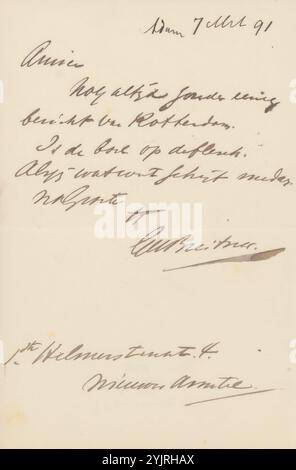 Adam 7 Mrt 91
Amice
Nog altijd zonder eenig
bericht van Rotterdam.
Is de boel op de flesch.
Als wat schrijf
na Groete
tt
GHBreitner.
1ste Helmersstraat. 4.
Nieuwer Amstel
alamy
Image ID: 2YJRHAX
www.alamy.com